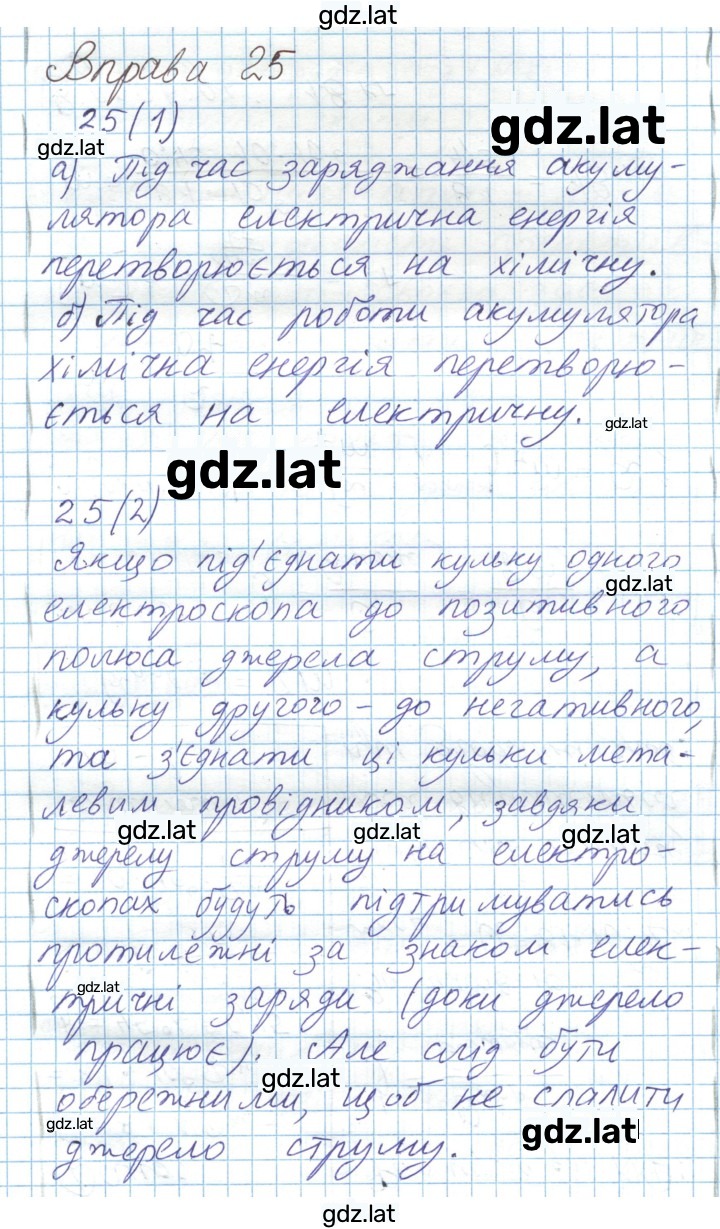 gdz.lat
Вправа 25
gdz.lat
25(1)
gdz.lat
а) Під час заряджання акуму-
лятора електрична енергія
перетворюється на хімічну.
б) Під час роботи акумулятора
хімічна енергія перетворю-
ється на електричну.
gdz.lat
gdz.lat
25(2)
Якщо під'єднати кульку одного
gdz.lat
електроскопа до позитивного
полюса джерела струму, а
кульку другого - до негативного,
та з'єднати ці кульки мета-
левим провідником, завдяки
gdz.lat gdz.lat gdz.lat
джерелу струму на електро-
скопах будуть підтримуватись
протилежні за знаком елек-
gdz.lat
тричні заряди (доки джерело
працює). Але слід бути
gdz.lat
обережними, щоб не спалити
gdz.lat
gdz.lat
джерело струму.
gdz.lat